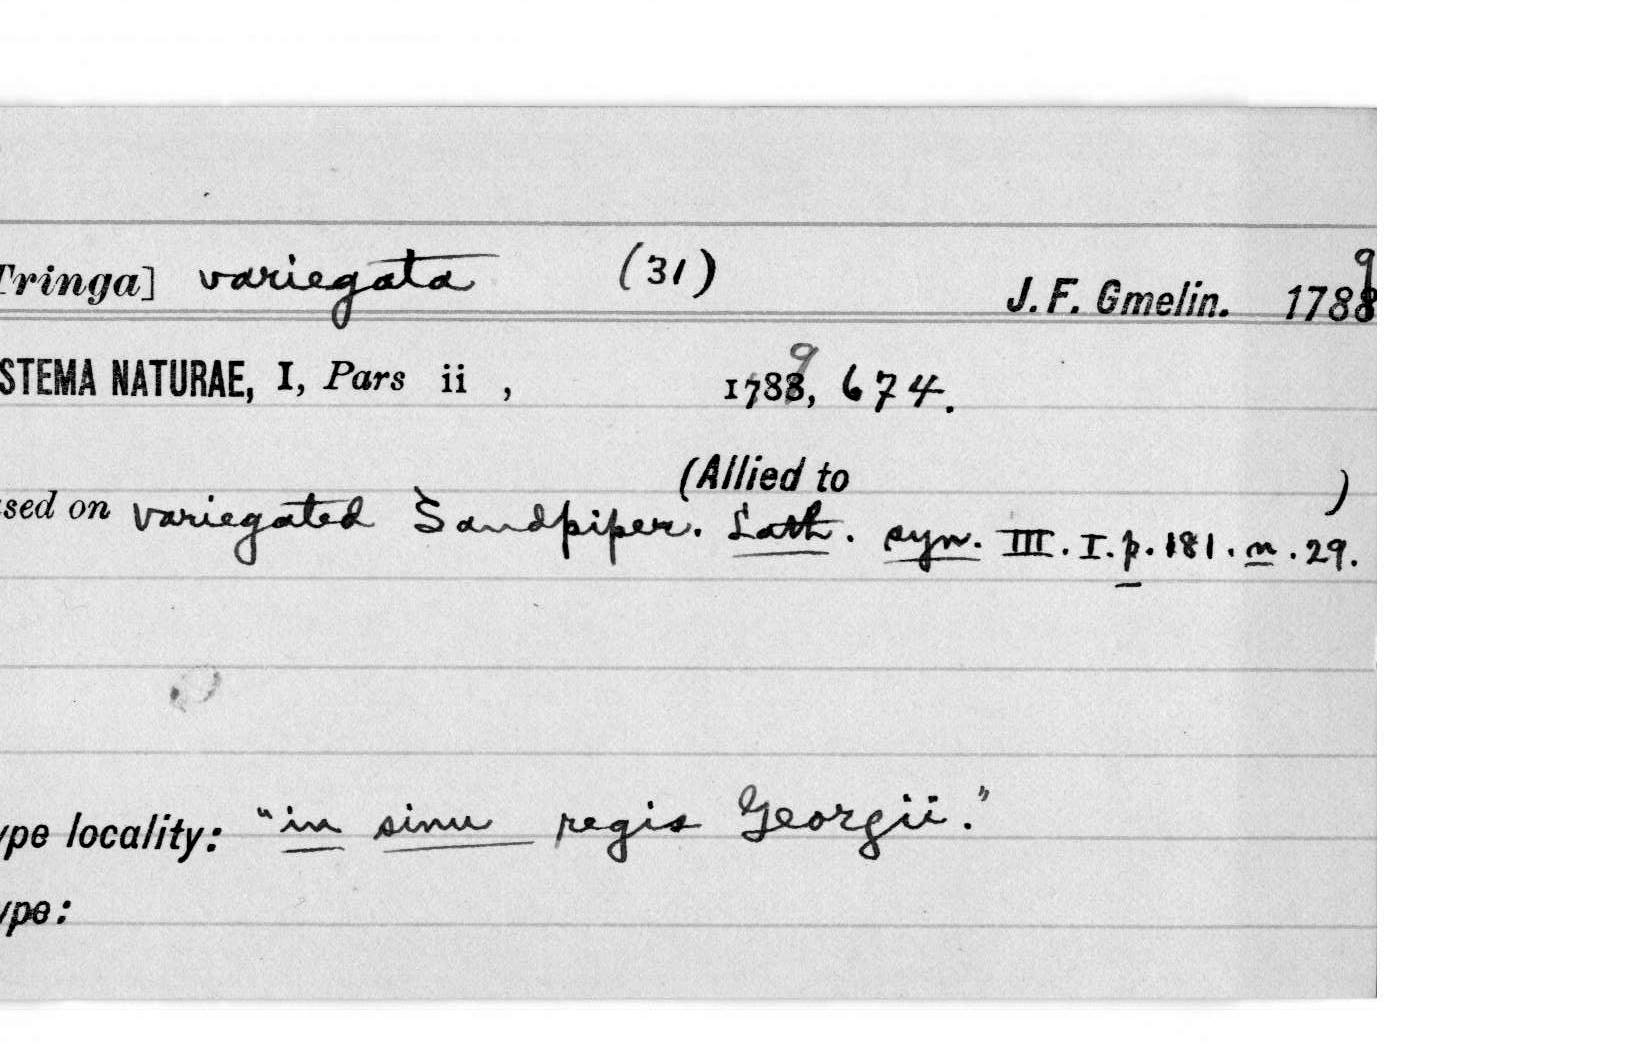 Tringa] variegata (31) J. F. Gmelin. 1789
STEMA NATURAE, I, Pars ii , 1789, 674.
(Allied to )
sed on Variegated Sandpiper. Lath. syn. III. I. p. 181. n. 29.
ype locality: "in sinu regis Georgii."
ype: